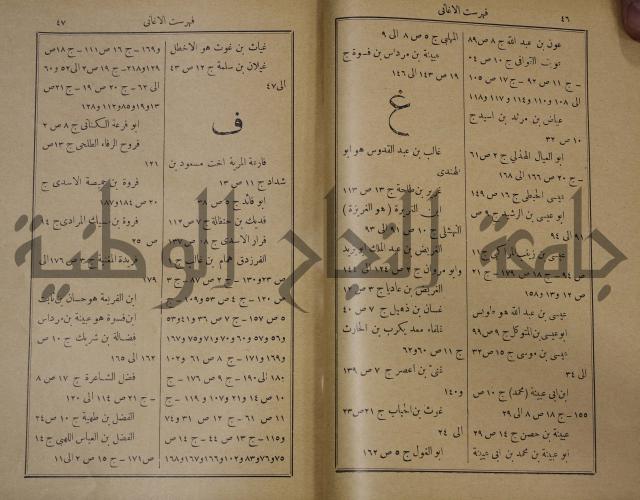 ٤٦
فهرست الاغانى
عون بن عبد الله ج ٨ ص ٨٩
عوف القوافى ج ١٠ ص ٥٤
- ج ١١ ص ٩٢ - ج ١٧ ص ١٠٥
الى ١٠٨ و ١١٠ و ١١٤ و ١١٧ و ١١٨
عياض بن مرثد بن اسيد ج
١٠ ص ٣٢
ابو العيال الهذلى ج ٢ ص ٦١
- ج ٢٠ ص ١٦٦ الى ١٦٨
عيسى الخبطى ج ١٦ ص ١٤٩
ابو عيسى بن الرشيد ج ٩ ص
٩١ الى ٩٤
عيسى بن زينب المراكبى ج ١١
ص ٩٤ - ج ١٨ ص ١٧٩ - ج ٢١
ص ١٢ و ١٣ و ١٥٨
عيسى بن عبد الله هو طويس
ابو عيسى بن المتوكل ج ٩ ص ٩٩
عيسى بن موسى ج ١٥ ص ٣٢
الى ٣٤
ابن ابى عيينة (محمد) ج ١٠ ص
١٥٥ - ج ١٨ ص ٨ الى ٢٩
عيينة بن حصن ج ١٤ ص ٢٩
ابو عيينة بن محمد بن ابى عيينة
المهلبى ج ٥ ص ٨ الى ٩
عيينة بن مرداس بن فسوة ج
١٩ ص ١٤٣ الى ١٤٦
غ
غالب بن عبد القدوس هو ابو
الهندى
غرير بن طلحة ج ١٣ ص ١١٣
ابن الغريزة (هو الغريرة)
النهشلى ج ١٠ ص ٩١ الى ٩٣
الغريض بن عبد الملك ابو يزيد
وابو مروان ج ٢ ص ١٢٤ الى ١٤٤
الغريض بن عاديا ج ٣ ص ١٢
غسان بن ذهيل ج ٧ ص ٤٠
غلفاء معد يكرب بن الحارث
ج ١١ ص ٦٠ و ٦٢
غنى بن اعصر ج ٧ ص ١٣٩
و ١٤٠
غوث بن الحباب ج ٢١ ص ٢٣
الى ٢٤
ابو الغول ج ٥ ص ١٦٢
فهرست الاغانى
٤٧
غياث بن غوث هو الاخطل
غيلان بن سلمة ج ١٢ ص ٤٣
الى ٤٧
ف
فارعة المرية اخت مسعود بن
شداد ج ١١ ص ١٣
ابو فائد ج ٥ ص ٣٨
فديك بن حنظلة ج ٧ ص ١١٢
فرار الاسدى ج ١٨ ص ١٣٧
الفرزدق همام بن غالب ج ١
ص ٢٣ و ١٣٠ - ج ٢ ص ٨٧ - ج ٣
ص ١٢٠ - ج ٤ ص ٥٣ و ١٠٩ - ج
٥ ص ١٥٧ - ج ٧ ص ٣٦ و ٤١ و ٥٣
و ٥٦ و ٥٧ و ٦٠ و ٧٠ و ٧١ و ٧٥ و ١٦٧
و ١٦٩ و ١٧١ - ج ٨ ص ٦١ و ١٠٢
و ١٨٠ الى ١٩٠ - ج ٩ ص ١٧٦ - ج
١٠ ص ١٤ و ٢١ و ١٠٧ و ١١٩ - ج
١١ ص ٦١ - ج ١٢ ص ٣١ و ٧٤
و ١١٥ - ج ١٣ ص ٤٤ - ج ١٤ ص
٧٥ و ٧٦ و ٨٣ و ١٠٢ و ١٦٦ و ١٦٧ و ١٦٨
و ١٦٩ - ج ١٦ ص ١١١ - ج ١٨ ص
١٢٩ و ٢١٨ - ج ١٩ ص ٢ الى ٥٢ و ٦٠
الى ٦٢ - ج ٢٠ ص ١٩ - ج ٢١ ص
١٣ و ١٩ و ٨٥ و ١١٢ و ١٢٨
ابو فرعة الكنانى ج ٨ ص ٢
فروح الرفاء الطلحى ج ١٣ ص
١٢١
فروة بن حميصة الاسدى ج
٢٠ ص ١٨٤ و ١٨٧
فروة بن مسيك المرادى ج ١٤
ص ٢٥
فريدة المغنية ج ٣ ص ١٧٦ الى
١٧٩
ابن الفريعة هو حسان بن ثابت
ابن فسوة هو عيينة بن مرداس
فضالة بن شريك ج ١٠ ص
١٦٢ الى ١٦٥
فضل الشاعرة ج ١٧ ص ٨
- ج ٢١ ص ١١٤ الى ١٢٠
الفضل بن طهية ج ١٠ ص ٢٤
الفضل بن العباس اللهبى ج ١٤
ص ١٧١ - ج ١٥ ص ٢ الى ١١
جامعة النجاح الوطنية